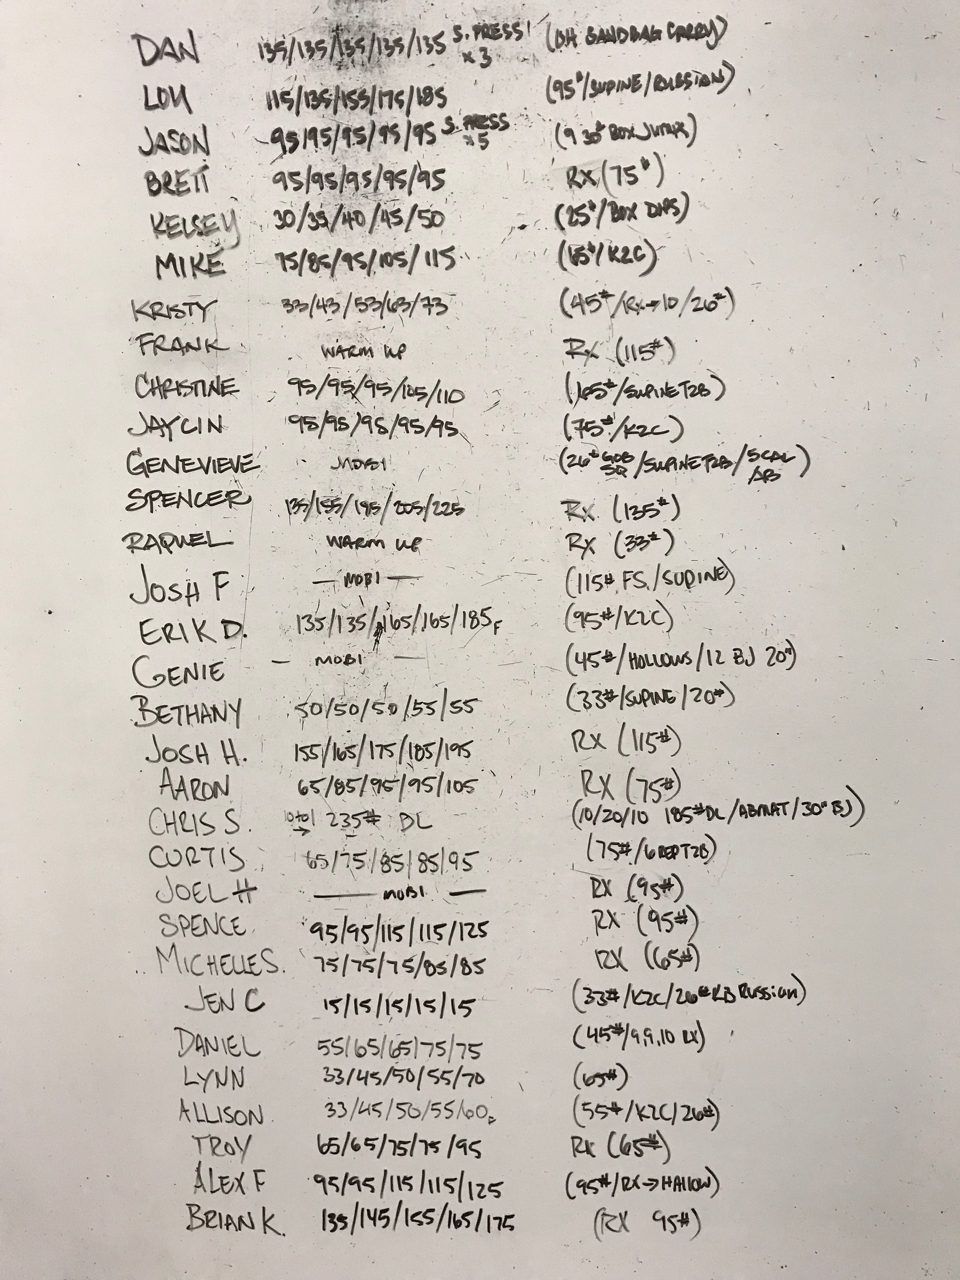 DAN 135/135/135/135/135 S. PRESS x3 (DH SANDBAG CARRY)
LOU 115/135/155/175/185 (95#/SUPINE/RUSSIAN)
JASON 95/95/95/95/95 S. PRESS x5 (9 30" BOX JUMPS)
BRETT 95/95/95/95/95 RX (75#)
KELSEY 30/35/40/45/50 (25#/BOX DIPS)
MIKE 75/85/95/105/115 (65#/K2C)
KRISTY 33/43/53/63/73 (45#/RX→10/26#)
FRANK WARM UP RX (115#)
CHRISTINE 95/95/95/105/110 (165#/SUPINE T2B)
JAYCIN 95/95/95/95/95 (75#/K2C)
GENEVIEVE MOBI (26# GOB SQ/SUPINE T2B/SCAL AB)
SPENCER 135/155/185/205/225 RX (135#)
RAQUEL WARM UP RX (33#)
JOSH F — MOBI — (115# F.S./SUPINE)
ERIK D. 135/135/165/165/185F (95#/K2C)
GENIE — MOBI — (45#/HOLLOWS/12 BJ 20")
BETHANY 50/50/50/55/55 (33#/SUPINE/20#)
JOSH H. 155/165/175/185/195 RX (115#)
AARON 65/85/95/95/105 RX (75#)
CHRIS S. 10to1 → 235# DL (10/20/10 185# DL/ABMAT/30" BJ)
CURTIS 65/75/85/85/95 (75#/6 REP T2B)
JOEL H — MOBI — RX (95#)
SPENCE 95/95/115/115/125 RX (95#)
MICHELLE S. 75/75/75/85/85 RX (65#)
JEN C 15/15/15/15/15 (33#/K2C/26# KB RUSSIAN)
DANIEL 55/65/65/75/75 (45#/9,9,10 RX)
LYNN 33/45/50/55/70 (65#)
ALLISON 33/45/50/55/60F (55#/K2C/26#)
TROY 65/65/75/75/95 RX (65#)
ALEX F 95/95/115/115/125 (95#/RX→HALLOW)
BRIAN K. 135/145/155/165/175 (RX 95#)